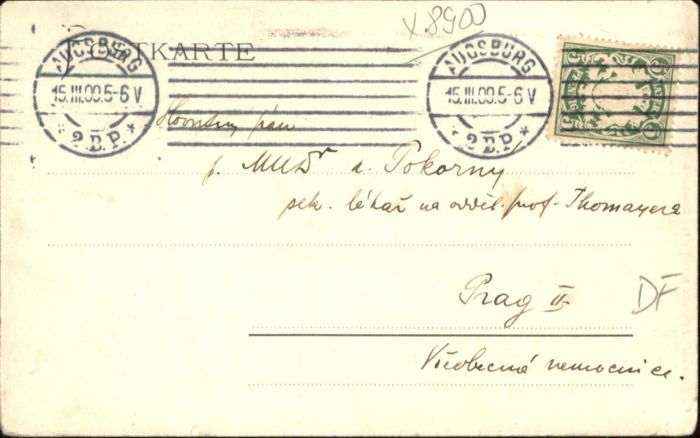 x 8900
POSTKARTE
AUGSBURG
15.III.09.5-6 V
* 2 B.P. *
AUGSBURG
15.III.09.5-6 V
* 2 B.P. *
pán
p. MUDr Pokorny
sek. lékař na odděl. prof. Thomayera
Prag II
DF
Všeobecná nemocnice.